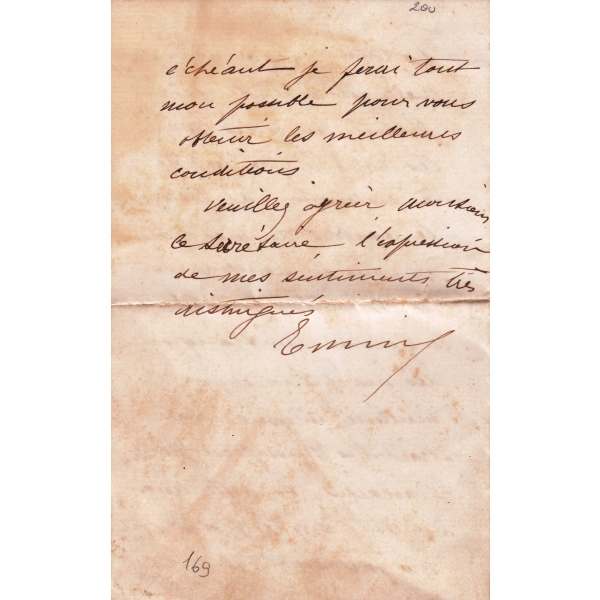 200
échéant je ferai tout
mon possible pour vous
obtenir les meilleures
conditions
Veuillez agréer monsieur
le secrétaire l'expression
de mes sentiments très
distingués
169